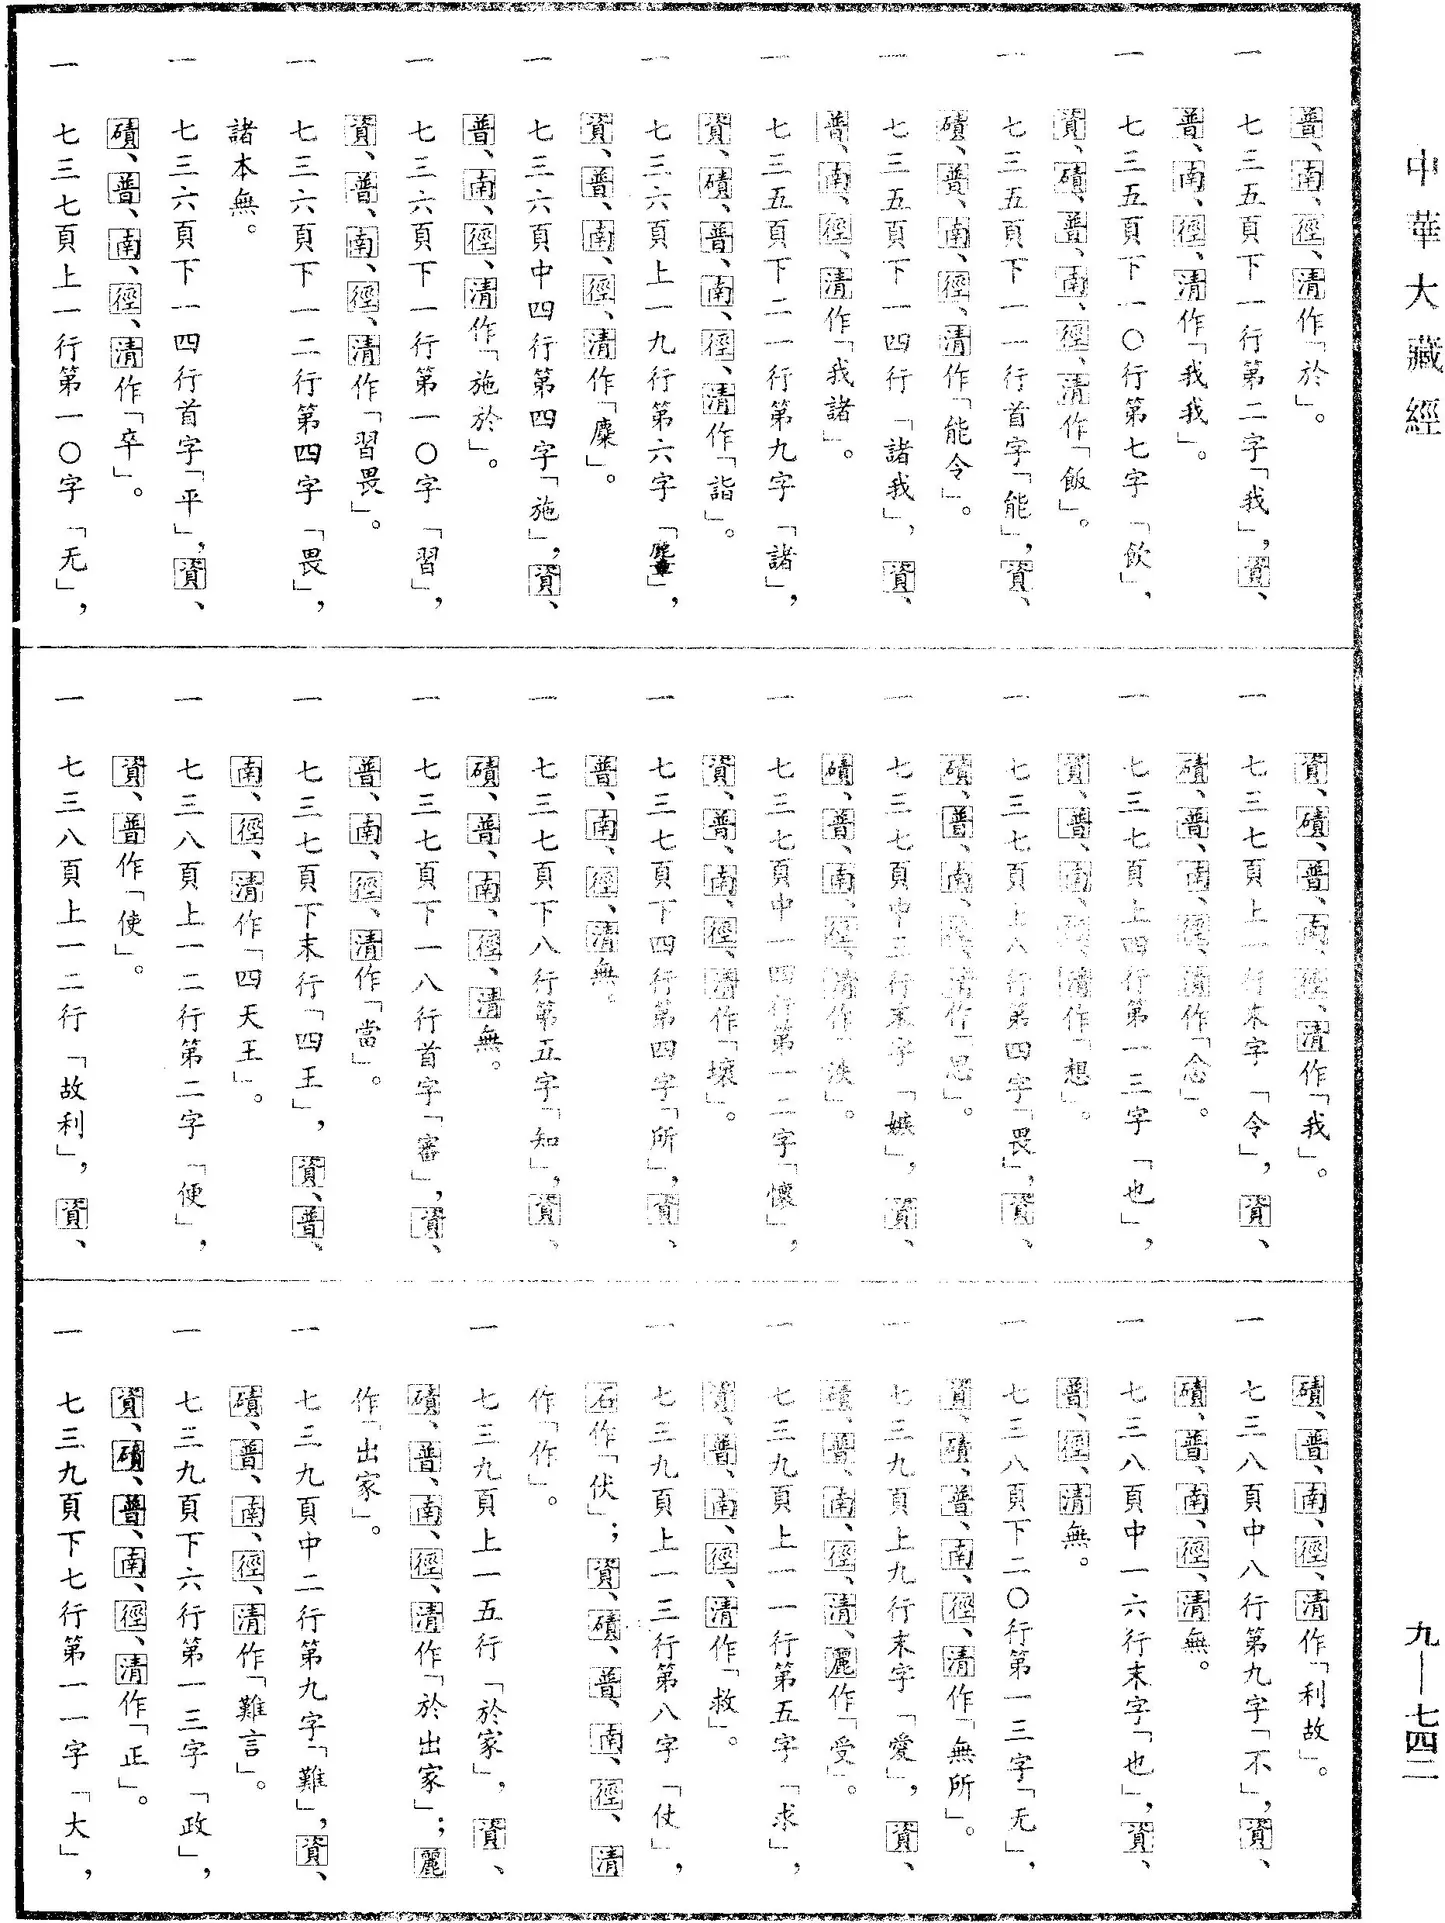 中華大藏經
普、南、徑、清作「於」。
一　七三五頁下一行第二字「我」，資、
普、南、徑、清作「我我」。
一　七三五頁下一〇行第七字「飲」，
資、磧、普、南、徑、清作「飯」。
一　七三五頁下一一行首字「能」，資、
磧、普、南、徑、清作「能令」。
一　七三五頁下一四行「諸我」，資、
普、南、徑、清作「我諸」。
一　七三五頁下二一行第九字「諸」，
資、磧、普、南、徑、清作「詣」。
一　七三六頁上一九行第六字「麞」，
資、普、南、徑、清作「麋」。
一　七三六頁中四行第四字「施」，資、
普、南、徑、清作「施於」。
一　七三六頁下一行第一〇字「習」，
資、普、南、徑、清作「習畏」。
一　七三六頁下一二行第四字「畏」，
諸本無。
一　七三六頁下一四行首字「平」，資、
磧、普、南、徑、清作「卒」。
一　七三七頁上一行第一〇字「无」，
資、磧、普、南、徑、清作「我」。
一　七三七頁上一行末字「令」，資、
磧、普、南、徑、清作「念」。
一　七三七頁上四行第一三字「也」，
資、普、南、徑、清作「想」。
一　七三七頁上八行第四字「畏」，資、
磧、普、南、徑、清作「思」。
一　七三七頁中三行末字「嫉」，資、
磧、普、南、徑、清作「泆」。
一　七三七頁中一四行第一二字「懷」，
資、普、南、徑、清作「壞」。
一　七三七頁下四行第四字「所」，資、
普、南、徑、清無。
一　七三七頁下八行第五字「知」，資、
磧、普、南、徑、清無。
一　七三七頁下一八行首字「審」，資、
普、南、徑、清作「當」。
一　七三七頁下末行「四王」，資、普、
南、徑、清作「四天王」。
一　七三八頁上一二行第二字「便」，
資、普作「使」。
一　七三八頁上一二行「故利」，資、
磧、普、南、徑、清作「利故」。
一　七三八頁中八行第九字「不」，資、
磧、普、南、徑、清無。
一　七三八頁中一六行末字「也」，資、
普、徑、清無。
一　七三八頁下二〇行第一三字「无」，
資、磧、普、南、徑、清作「無所」。
一　七三九頁上九行末字「愛」，資、
磧、普、南、徑、清、麗作「受」。
一　七三九頁上一一行第五字「求」，
資、普、南、徑、清作「救」。
一　七三九頁上一三行第八字「仗」，
石作「伏」；資、磧、普、南、徑、清
作「作」。
一　七三九頁上一五行「於家」，資、
磧、普、南、徑、清作「於出家」；麗
作「出家」。
一　七三九頁中二行第九字「難」，資、
磧、普、南、徑、清作「難言」。
一　七三九頁下六行第一三字「政」，
資、磧、普、南、徑、清作「正」。
一　七三九頁下七行第一一字「大」，
九—七四二